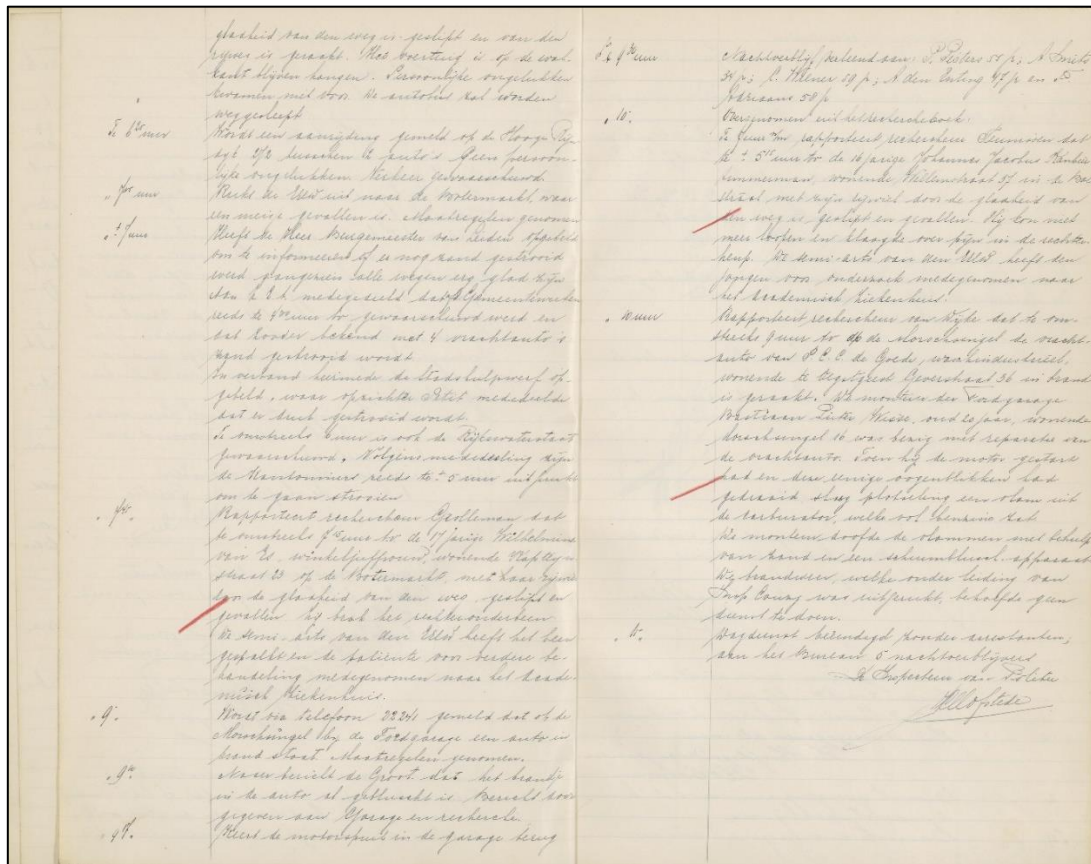 gladheid van den weg is geslipt en van den
rijweg is geraakt. Het voertuig is op de wal-
kant blijven hangen. Persoonlijke ongelukken
kwamen niet voor. De autobus zal worden
weggesleept
Te 6 uur Wordt een aanrijding gemeld op de Hooge Rijn-
dijk tusschen 2 auto's. Geen persoon-
lijke ongelukken. Verkeer gewaarschuwd.
uur Rukt de E.H.D. uit naar de Botermarkt, waar
een meisje gevallen is. Maatregelen genomen
± 7 uur Heeft de Heer Burgemeester van Leiden opgebeld
om te informeeren of er nog zand gestrooid
werd aangezien alle wegen erg glad zijn
Aan Z.E.A. medegedeeld dat Gemeentewerken
reeds te uur gewaarschuwd werd en
dat zonder bekend met 4 vrachtauto's
zand gestrooid wordt
In verband hiermede de Stadshulpwerf op-
gebeld, waar opzichter mededeelde
dat er druk gestrooid wordt.
Te omstreeks 6 uur is ook de Rijkswaterstaat
gewaarschuwd. Volgens mededeeling zijn
de Kantonniers reeds te ± 5 uur uitgerukt
om te gaan strooien
Rapporteert rechercheur Grolleman dat
te omstreeks uur de 17 jarige Wilhelmina
van Es, winkeljuffrouw, wonende Kapteyn-
straat 23 op de Botermarkt, met haar rijwiel
door de gladheid van den weg, geslipt en
gevallen is brak het rechteronderbeen
De semi-arts van den E.H.D. heeft het been
gespalkt en de patiënte voor verdere be-
handeling medegenomen naar het Acade-
misch Ziekenhuis.
" 9 " Wordt via telefoon 22241 gemeld dat op de
Morschsingel bij de Fordgarage een auto in
brand staat. Maatregelen genomen.
" 9 " bericht de Groot dat het brandje
in de auto al gebluscht is. Bericht door-
gegeven aan Garage en recherche
" 9 " Keert de motorspuit in de garage terug
Te 9 30 uur Nachtverblijf verleend aan: P. Pesters 50 j; A Smits
j; C. Wiener 19 j; A den Enting j en
Adriaans 58 j
" 10 " Overgenomen uit het rechercheboek:
Te uur rapporteert rechercheur Teunissen dat
te ± 5 uur de 16 jarige Johannes Jacobus
timmerman, wonende Willemstraat 57 in de
straat met zijn rijwiel door de gladheid van
den weg is geslipt en gevallen. Hij kon niet
meer loopen en klaagde over pijn in de rechter
heup. De semi-arts van den E.H.D. heeft den
jongen voor onderzoek medegenomen naar
het Academisch Ziekenhuis.
" 10 uur Rapporteert rechercheur van dat te om-
streeks 9 uur op de Morschsingel de vracht-
auto van P.C.C. de Goede,
wonende te Oegstgeest Geverstraat 36 in brand
is geraakt. De monteur der Fordgarage
Bastiaan Pieter Visser, oud 20 jaar, wonende
Morschsingel 16 was bezig met reparatie van
de vrachtauto. Toen hij de motor gestart
had en deze eenige oogenblikken had
gedraaid sloeg plotseling een vlam uit
de carburator, welke vol benzine zat.
De monteur doofde de vlammen met behulp
van zand en een schuimblusch apparaat
De brandweer, welke onder leiding van
Insp was uitgerukt, behoefde geen
dienst te doen.
Dagdienst beëindigd zonder arrestanten;
aan het Bureau 5 nachtverblijvers
De Inspecteur van Politie